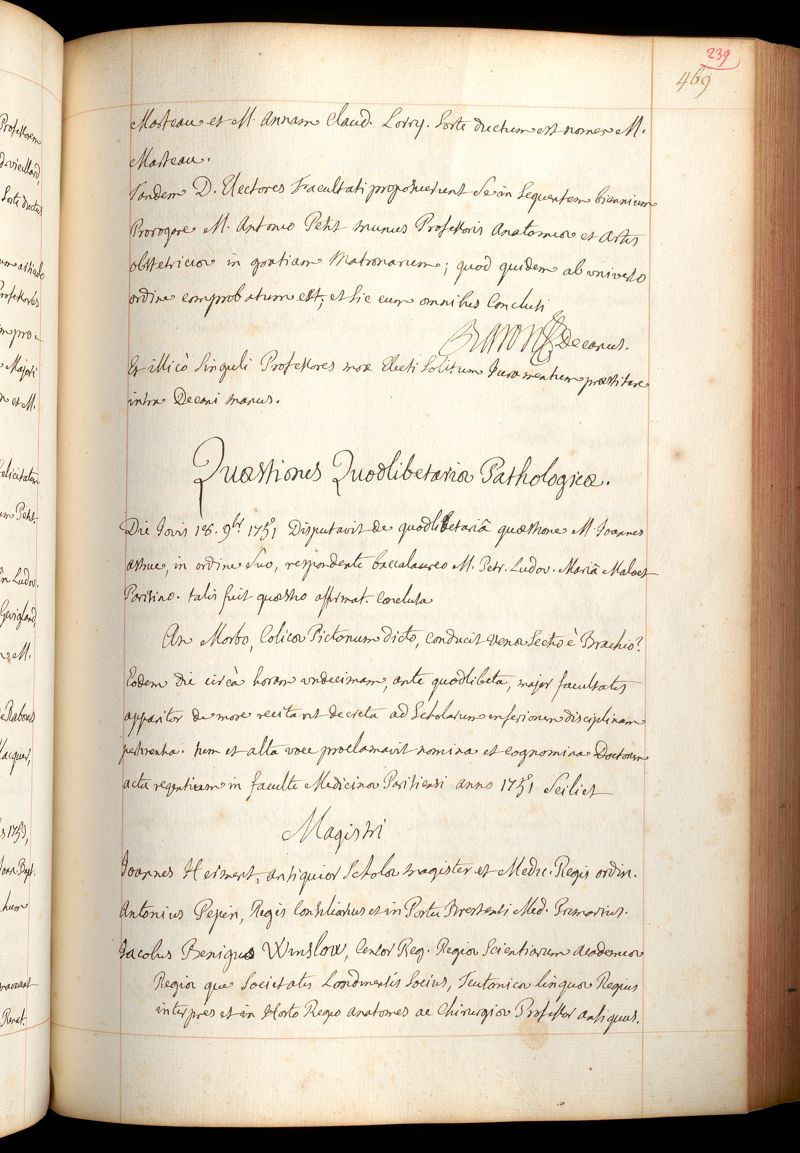 Professorem
Sorte ductus
Professores
Majori
et M.
felicitatem
um Petit.
in Ludov.
Gevigland
M.
de Rabours
Jacques,
1753,
Joan Bapt.
hum
Renat.
239
469
Masteau et M. Annam Claud. Lorry. Sorte ductum est nomen M.
Masteau.
Tandem D. Electores Facultati proposuerunt se in sequentem biennium
Prorogare M. Antonio Petit munus Professoris Anatomiæ et Artis
obstetriciæ in gratiam Matronarum; quod quidem ab universo
ordine comprobatum est, et sic cum omnibus conclusi
Baron Decanus.
Et illicò singuli Professores mox Electi solitum Juramentum præstitere
intra Decani manus.
Quæstiones Quodlibetariæ Pathologicæ.
Die Jovis 18. 9br 1751 Disputavit de quodlibetariâ quæstione M. Joannes
astruc, in ordine suo, respondente baccalaureo M. Petr. Ludov. Mariâ Maloet
Parisino. talis fuit quæstio affirmat. conclusa
An Morbo, Colica Pictonum dicto, conducit venæ Sectio è Brachio?
Eodem Die circà horam undecimam, ante quodlibeta, major facultatis
apparitor de more recitavit decreta ad Scholarum inferiorum disciplinam
pertinentia. tum et alta voce proclamavit nomina et cognomina Doctorum
actu regentium in faculte Medicinæ Parisiensi anno 1751 Scilicet
Magistri
Joannes Herment, antiquior Scholæ magister et Medic. Regis ordin.
Antonius Pepin, Regis Consiliarius et in Portu Brestensi Med. Primarius.
Jacobus Benignus Winslow, Censor Reg. Regiæ Scientiarum Academiæ
Regiæ que Societatis Londinensis Socius, Teutonicæ linguæ Regius
interpres et in Horto Regio anatomes ac Chirurgiæ Professor antiquus.